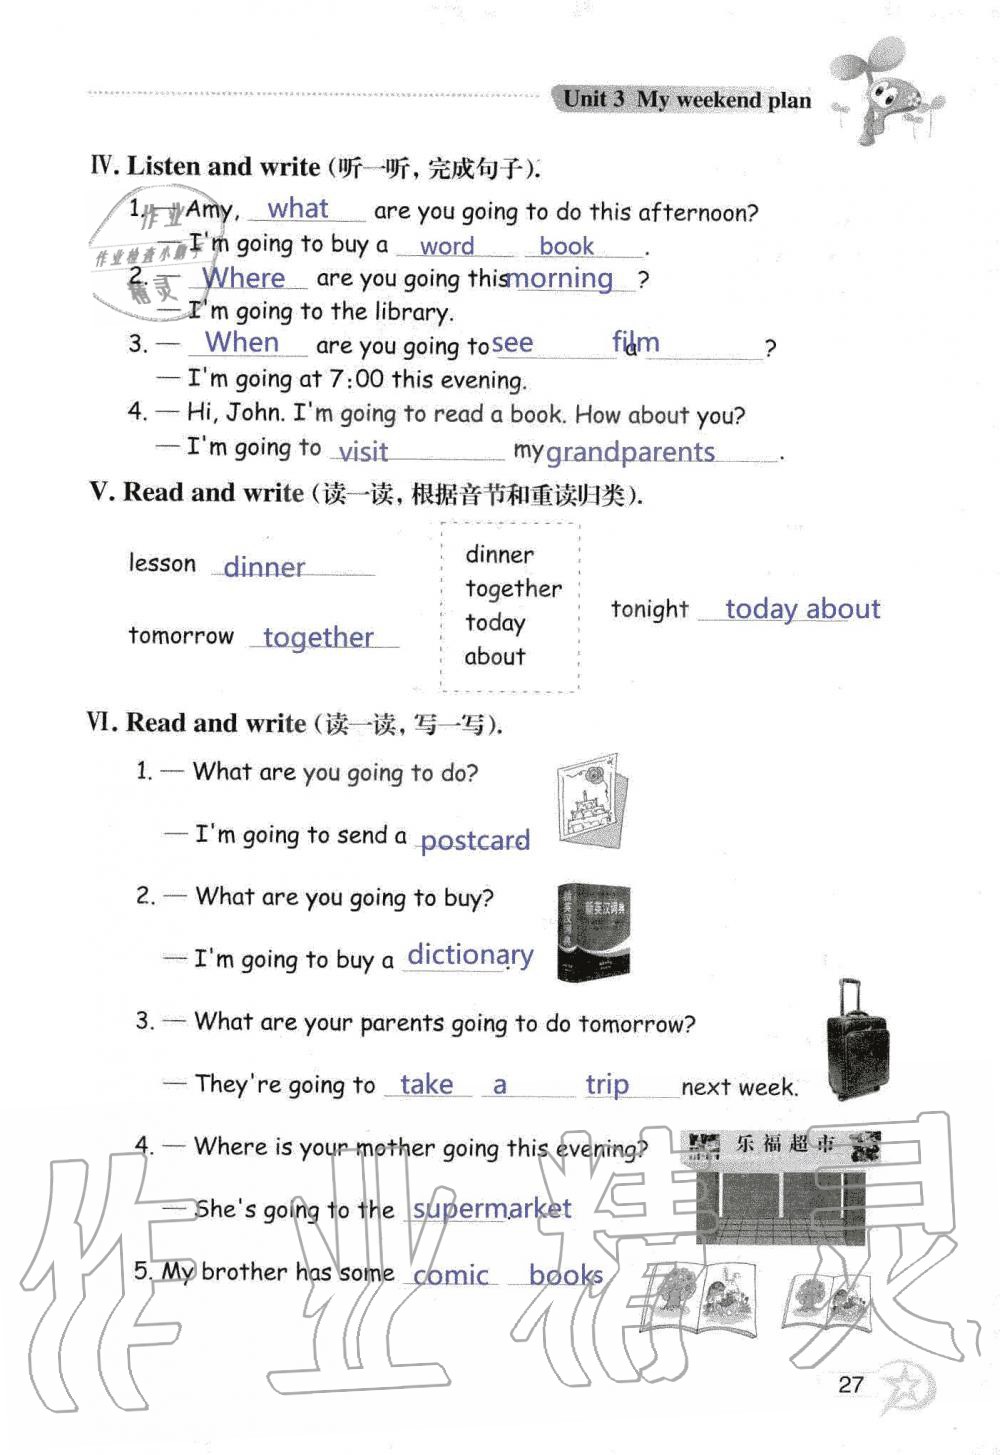 Unit 3 My weekend plan
Ⅳ. Listen and write (听一听, 完成句子).
1. — Amy, what are you going to do this afternoon?
— I'm going to buy a word book.
2. — Where are you going this morning ?
— I'm going to the library.
3. — When are you going to see a film ?
— I'm going at 7:00 this evening.
4. — Hi, John. I'm going to read a book. How about you?
— I'm going to visit my grandparents.
Ⅴ. Read and write (读一读, 根据音节和重读归类).
dinner
lesson dinner
together
tonight today about
today
tomorrow together
about
Ⅵ. Read and write (读一读, 写一写).
1. — What are you going to do?
— I'm going to send a postcard
2. — What are you going to buy?
新英汉词典
新英汉词典
— I'm going to buy a dictionary.
3. — What are your parents going to do tomorrow?
— They're going to take a trip next week.
4. — Where is your mother going this evening?
乐福超市
— She's going to the supermarket
5. My brother has some comic books.
27
作业
作业检查小助手
精灵
作业精灵